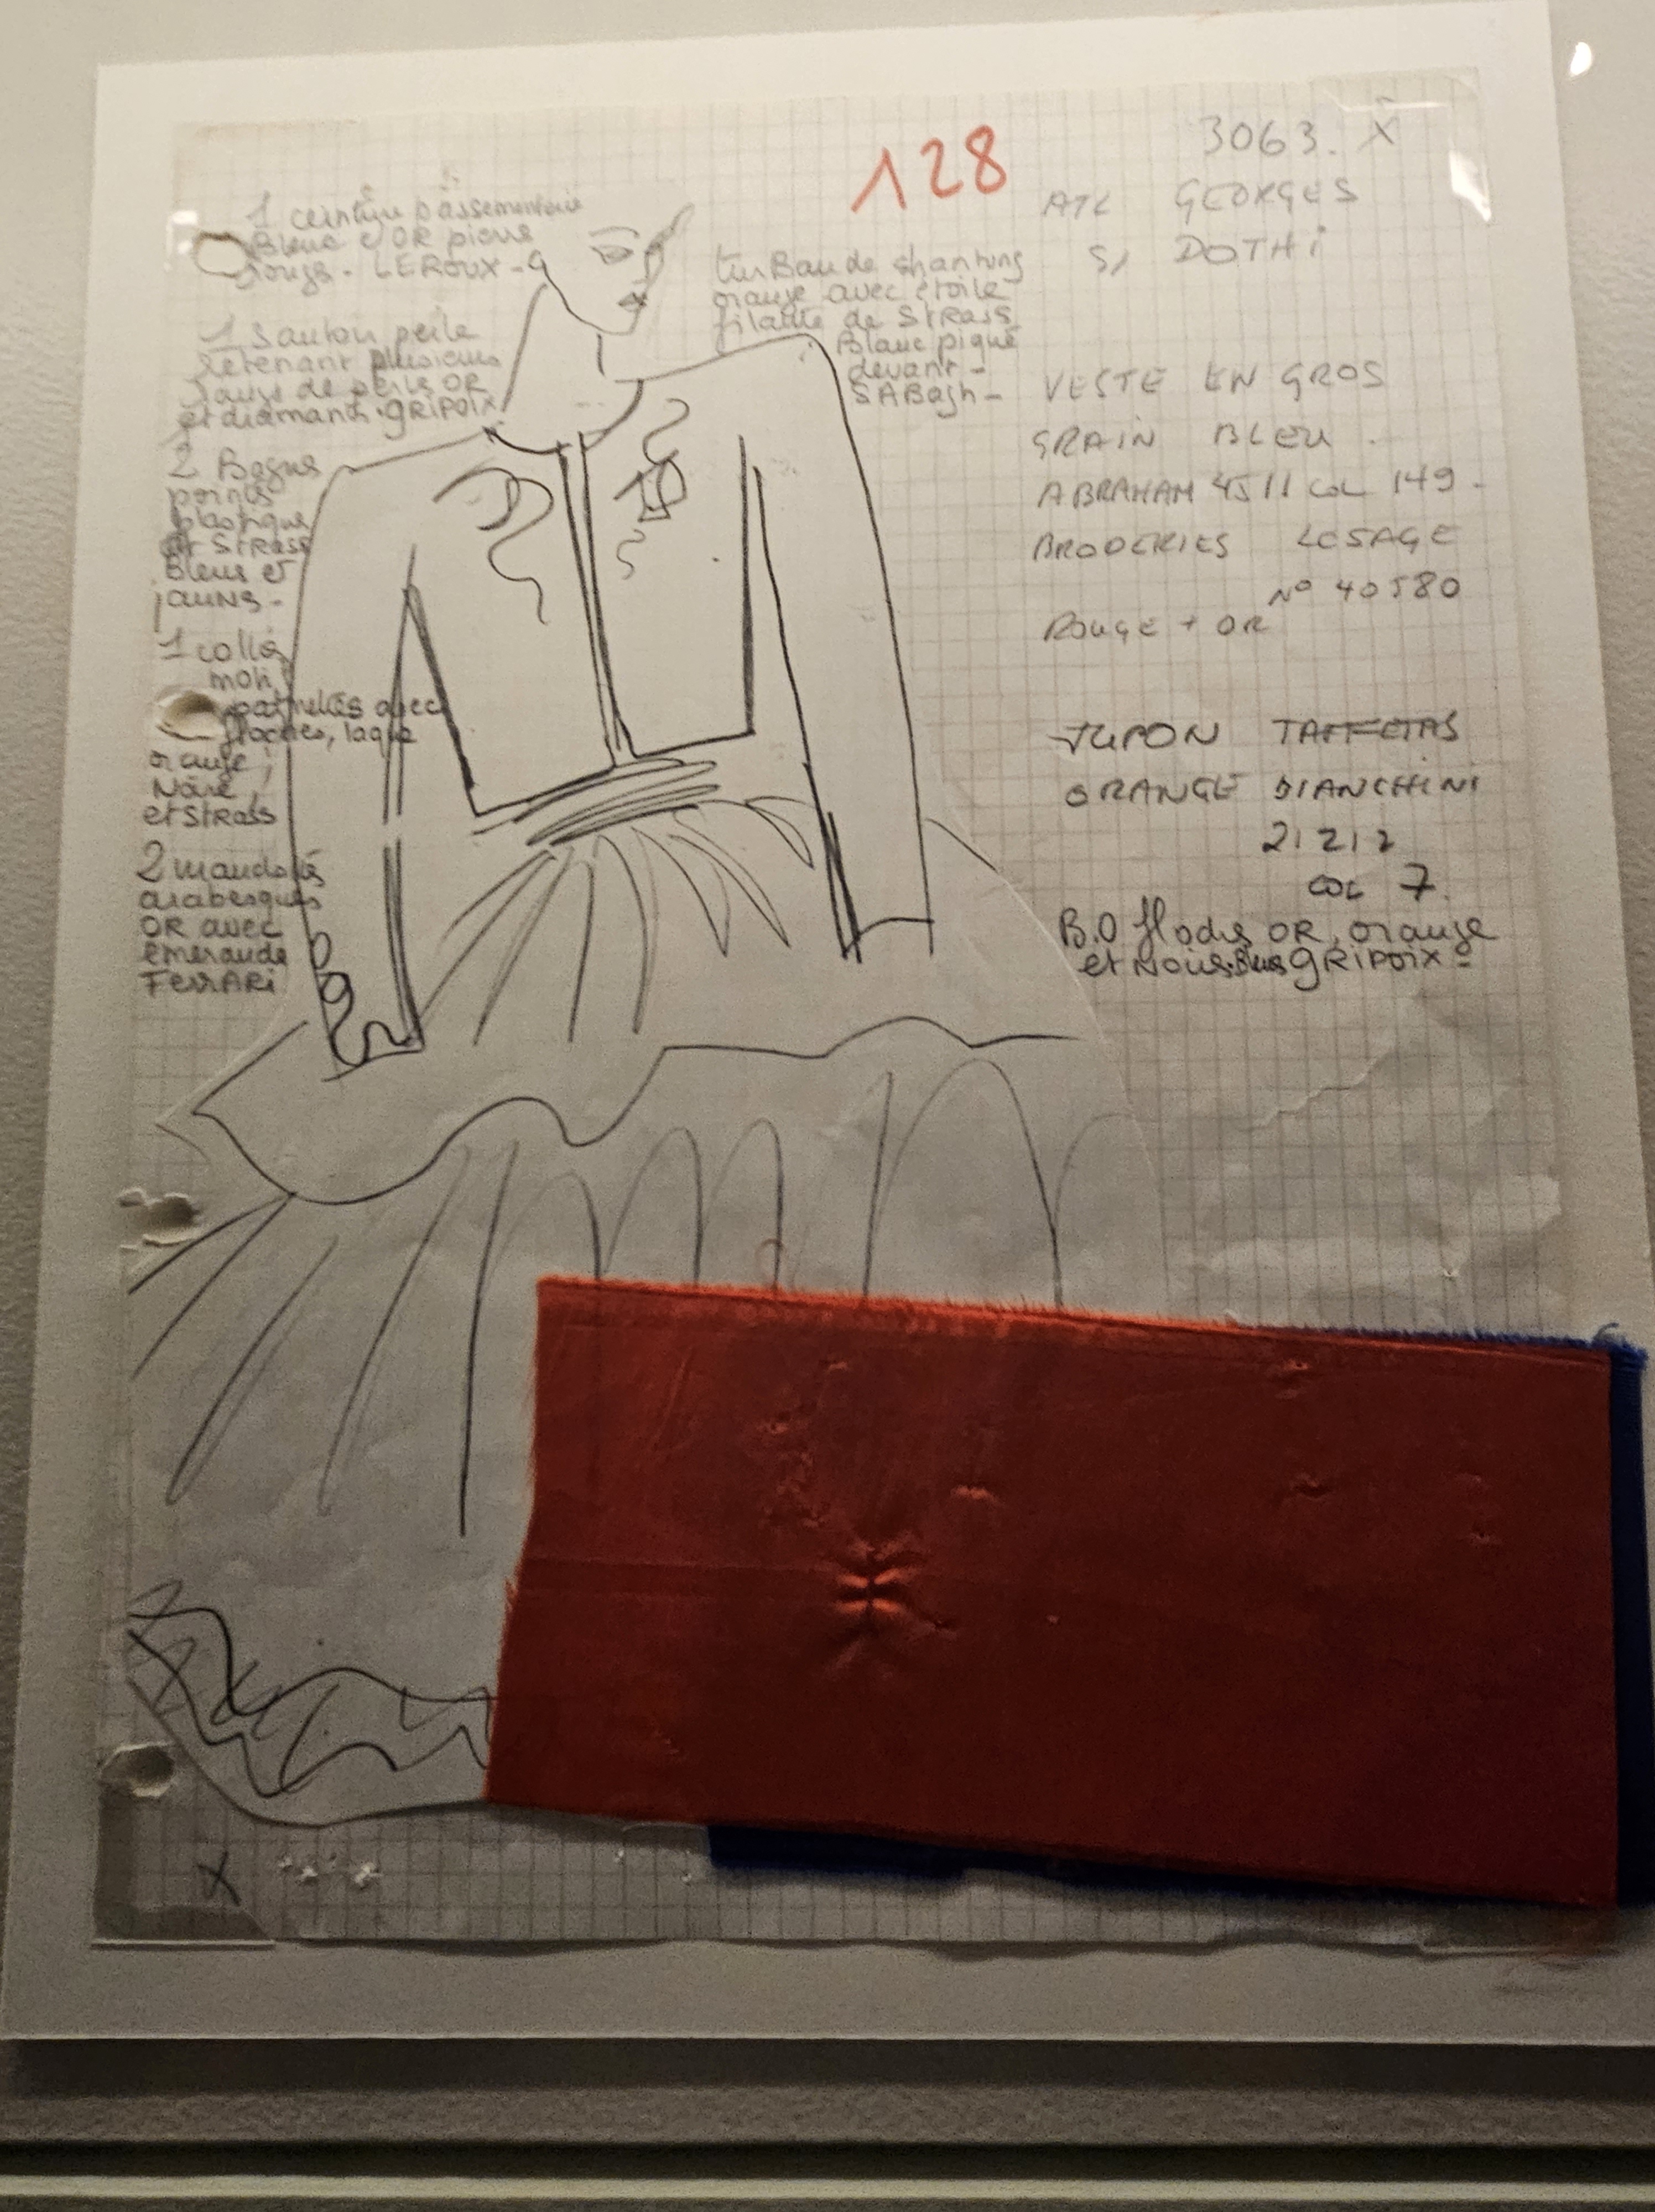 128
3063. X
ATL GEORGES
S/ DOTHI
1 ceinture passementerie
Bleue et OR pierre
rouge - LEROUX -
turBan de shantung
orange avec étoile
filante de STRASS
Blanc piqué
devant -
SABagh -
1 sautoir perle
retenant plusieurs
rangs de perle OR
et diamants. GRIPOIX
2 Bagues
poings
plastique
et STRASS
Bleus et
jaunes -
1 collier
motif
paillettes avec
floches, laque
orange,
Noire,
et STRASS
2 manchettes
arabesques
OR avec
émeraude
FerrARi
VESTE EN GROS
GRAIN BLEU.
ABRAHAM 4511 COL 149 -
BRODERIES LESAGE
N° 40580
ROUGE + OR
JUPON TAFFETAS
ORANGE BIANCHINI
21212
COL 7.
B.O floches OR, orange
et GRIPOIX
X